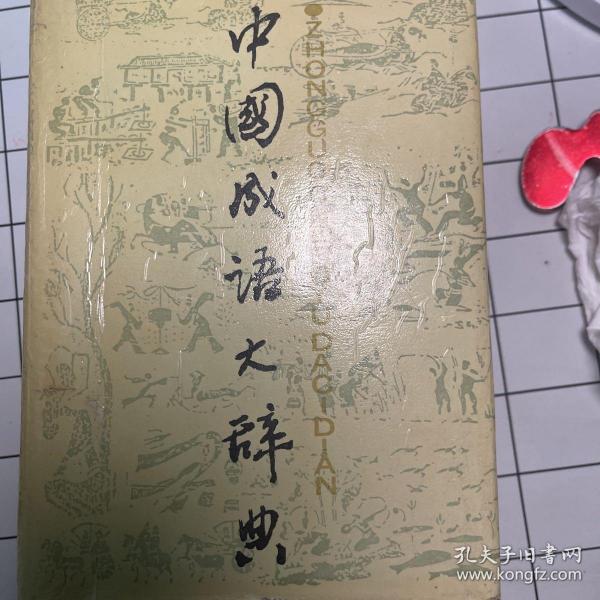 中國成语大辞典
ZHONGGUO
UDACIDIAN
孔夫子旧书网
www.kongfz.com